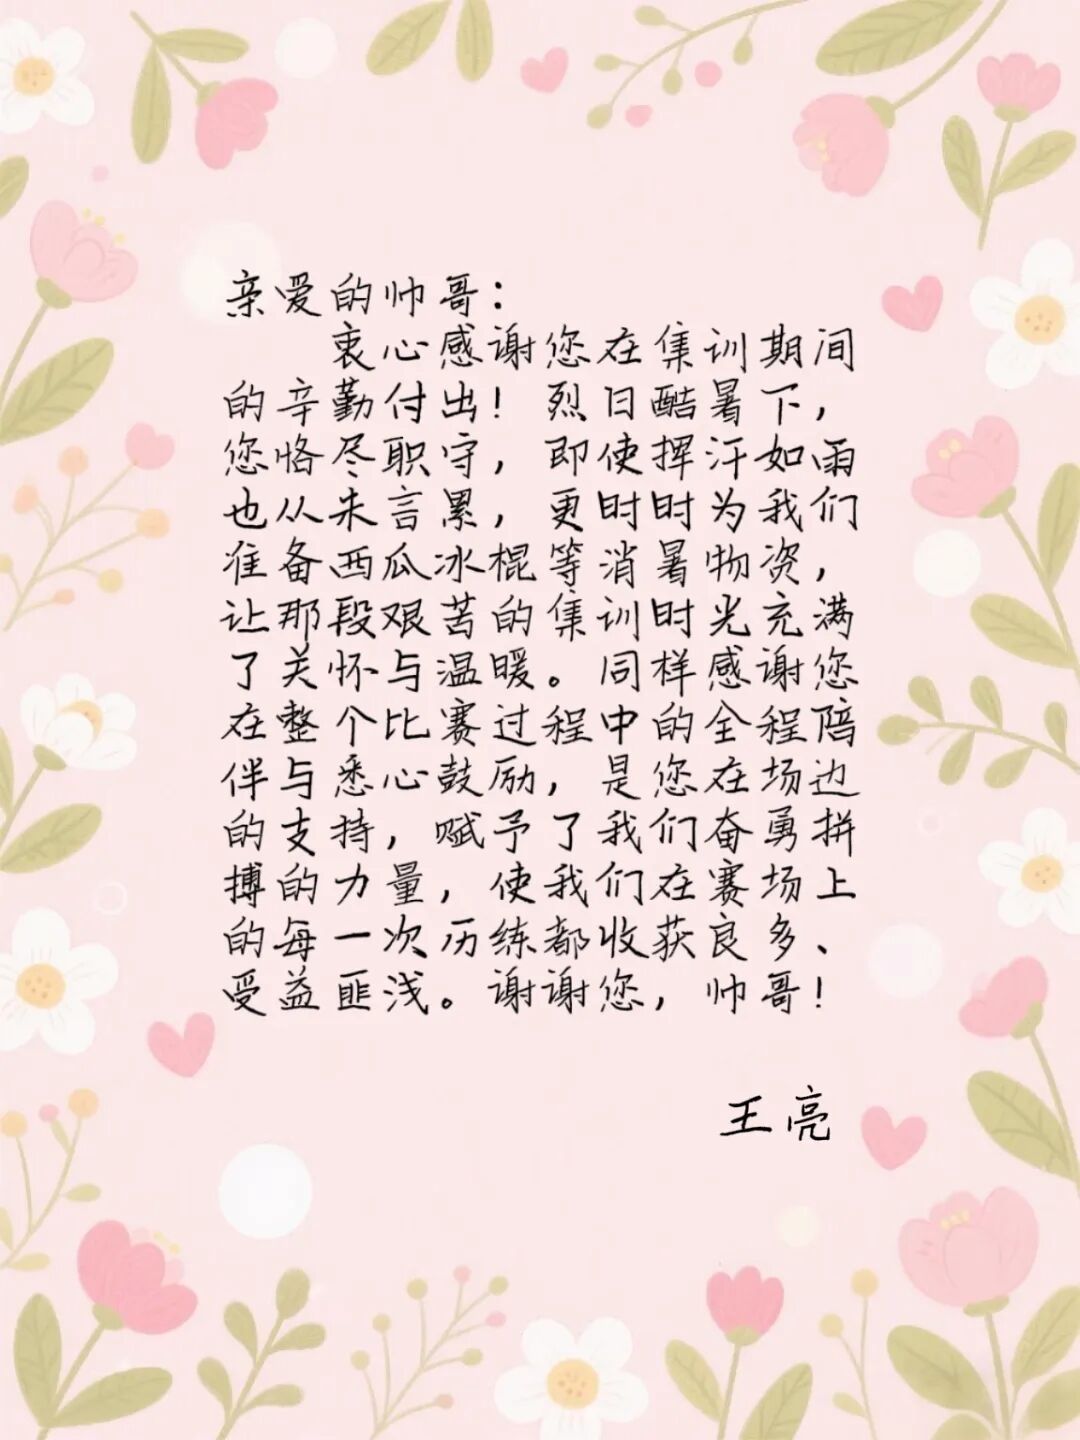 亲爱的帅哥：
衷心感谢您在集训期间
的辛勤付出！烈日酷暑下，
您恪尽职守，即使挥汗如雨
也从未言累，更时时为我们
准备西瓜冰棍等消暑物资，
让那段艰苦的集训时光充满
了关怀与温暖。同样感谢您
在整个比赛过程中的全程陪
伴与悉心鼓励，是您在场边
的支持，赋予了我们奋勇拼
搏的力量，使我们在赛场上
的每一次历练都收获良多、
受益匪浅。谢谢您，帅哥！
王亮